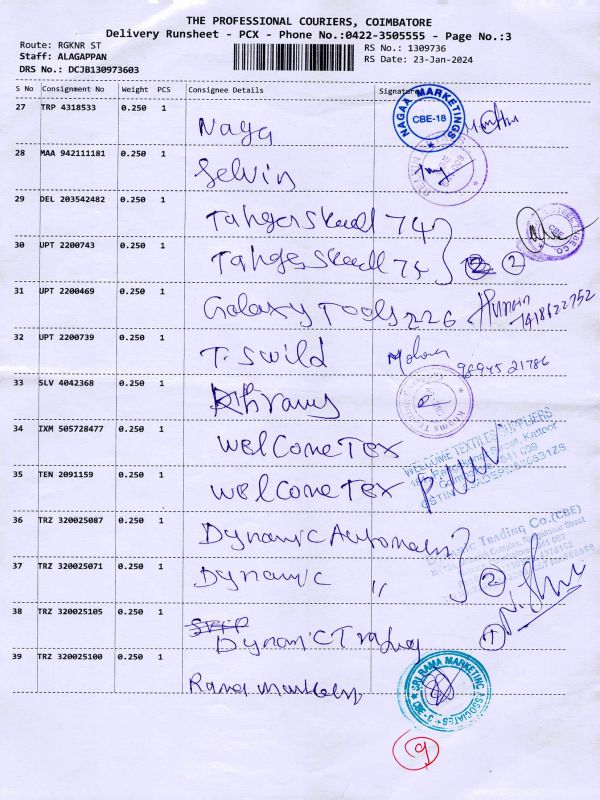 THE PROFESSIONAL COURIERS, COIMBATORE
Delivery Runsheet - PCX - Phone No.:0422-3505555 - Page No.:3
Route: RGKNR ST
RS No.: 1309736
Staff: ALAGAPPAN
RS Date: 23-Jan-2024
DRS No.: DCJB130973603
S No Consignment No Weight PCS Consignee Details Signature
27 TRP 4318533 0.250 1
Naga
NAGAA MARKETINGS
CBE-18
28 MAA 942111181 0.250 1
Selvin
29 DEL 203542482 0.250 1
74
30 UPT 2200743 0.250 1
75
2
31 UPT 2200469 0.250 1
Galaxy Tools 226
7418622752
32 UPT 2200739 0.250 1
T. Swild
98945 21786
33 SLV 4042368 0.250 1
34 IXM 505728477 0.250 1
Welcome Tex
WELCOME TEXTILE SUPPLIERS
35 TEN 2091159 0.250 1
Welcome Tex
36 TRZ 320025087 0.250 1
Dynamic
DYNAMIC Trading Co.(CBE)
37 TRZ 320025071 0.250 1
Dynamic "
2
38 TRZ 320025105 0.250 1
Dynamic Trading
1
39 TRZ 320025100 0.250 1
Rama
SRI RAMA MARKETING ASSOCIATES
CBE-3
9